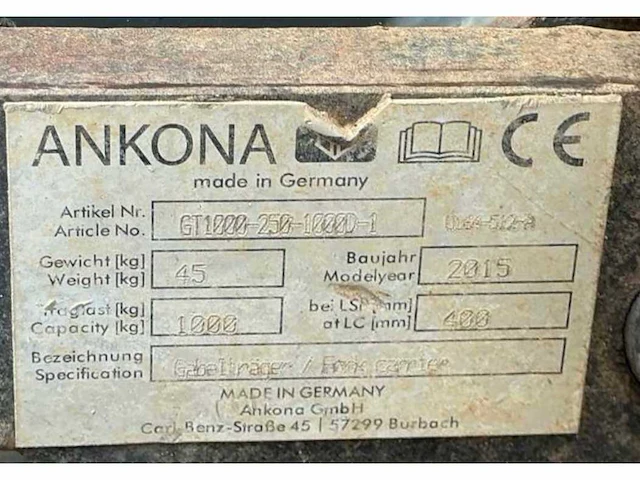 ANKONA CE
made in Germany
Artikel Nr.
Article No. GT1000-250-1000D-1
Gewicht [kg] Baujahr
Weight [kg] 45 Modelyear 2015
Traglast [kg] bei LSP [mm]
Capacity [kg] 1000 at LC [mm] 400
Bezeichnung
Specification Gabelträger / Fork carrier
MADE IN GERMANY
Ankona GmbH
Carl-Benz-Straße 45 | 57299 Burbach